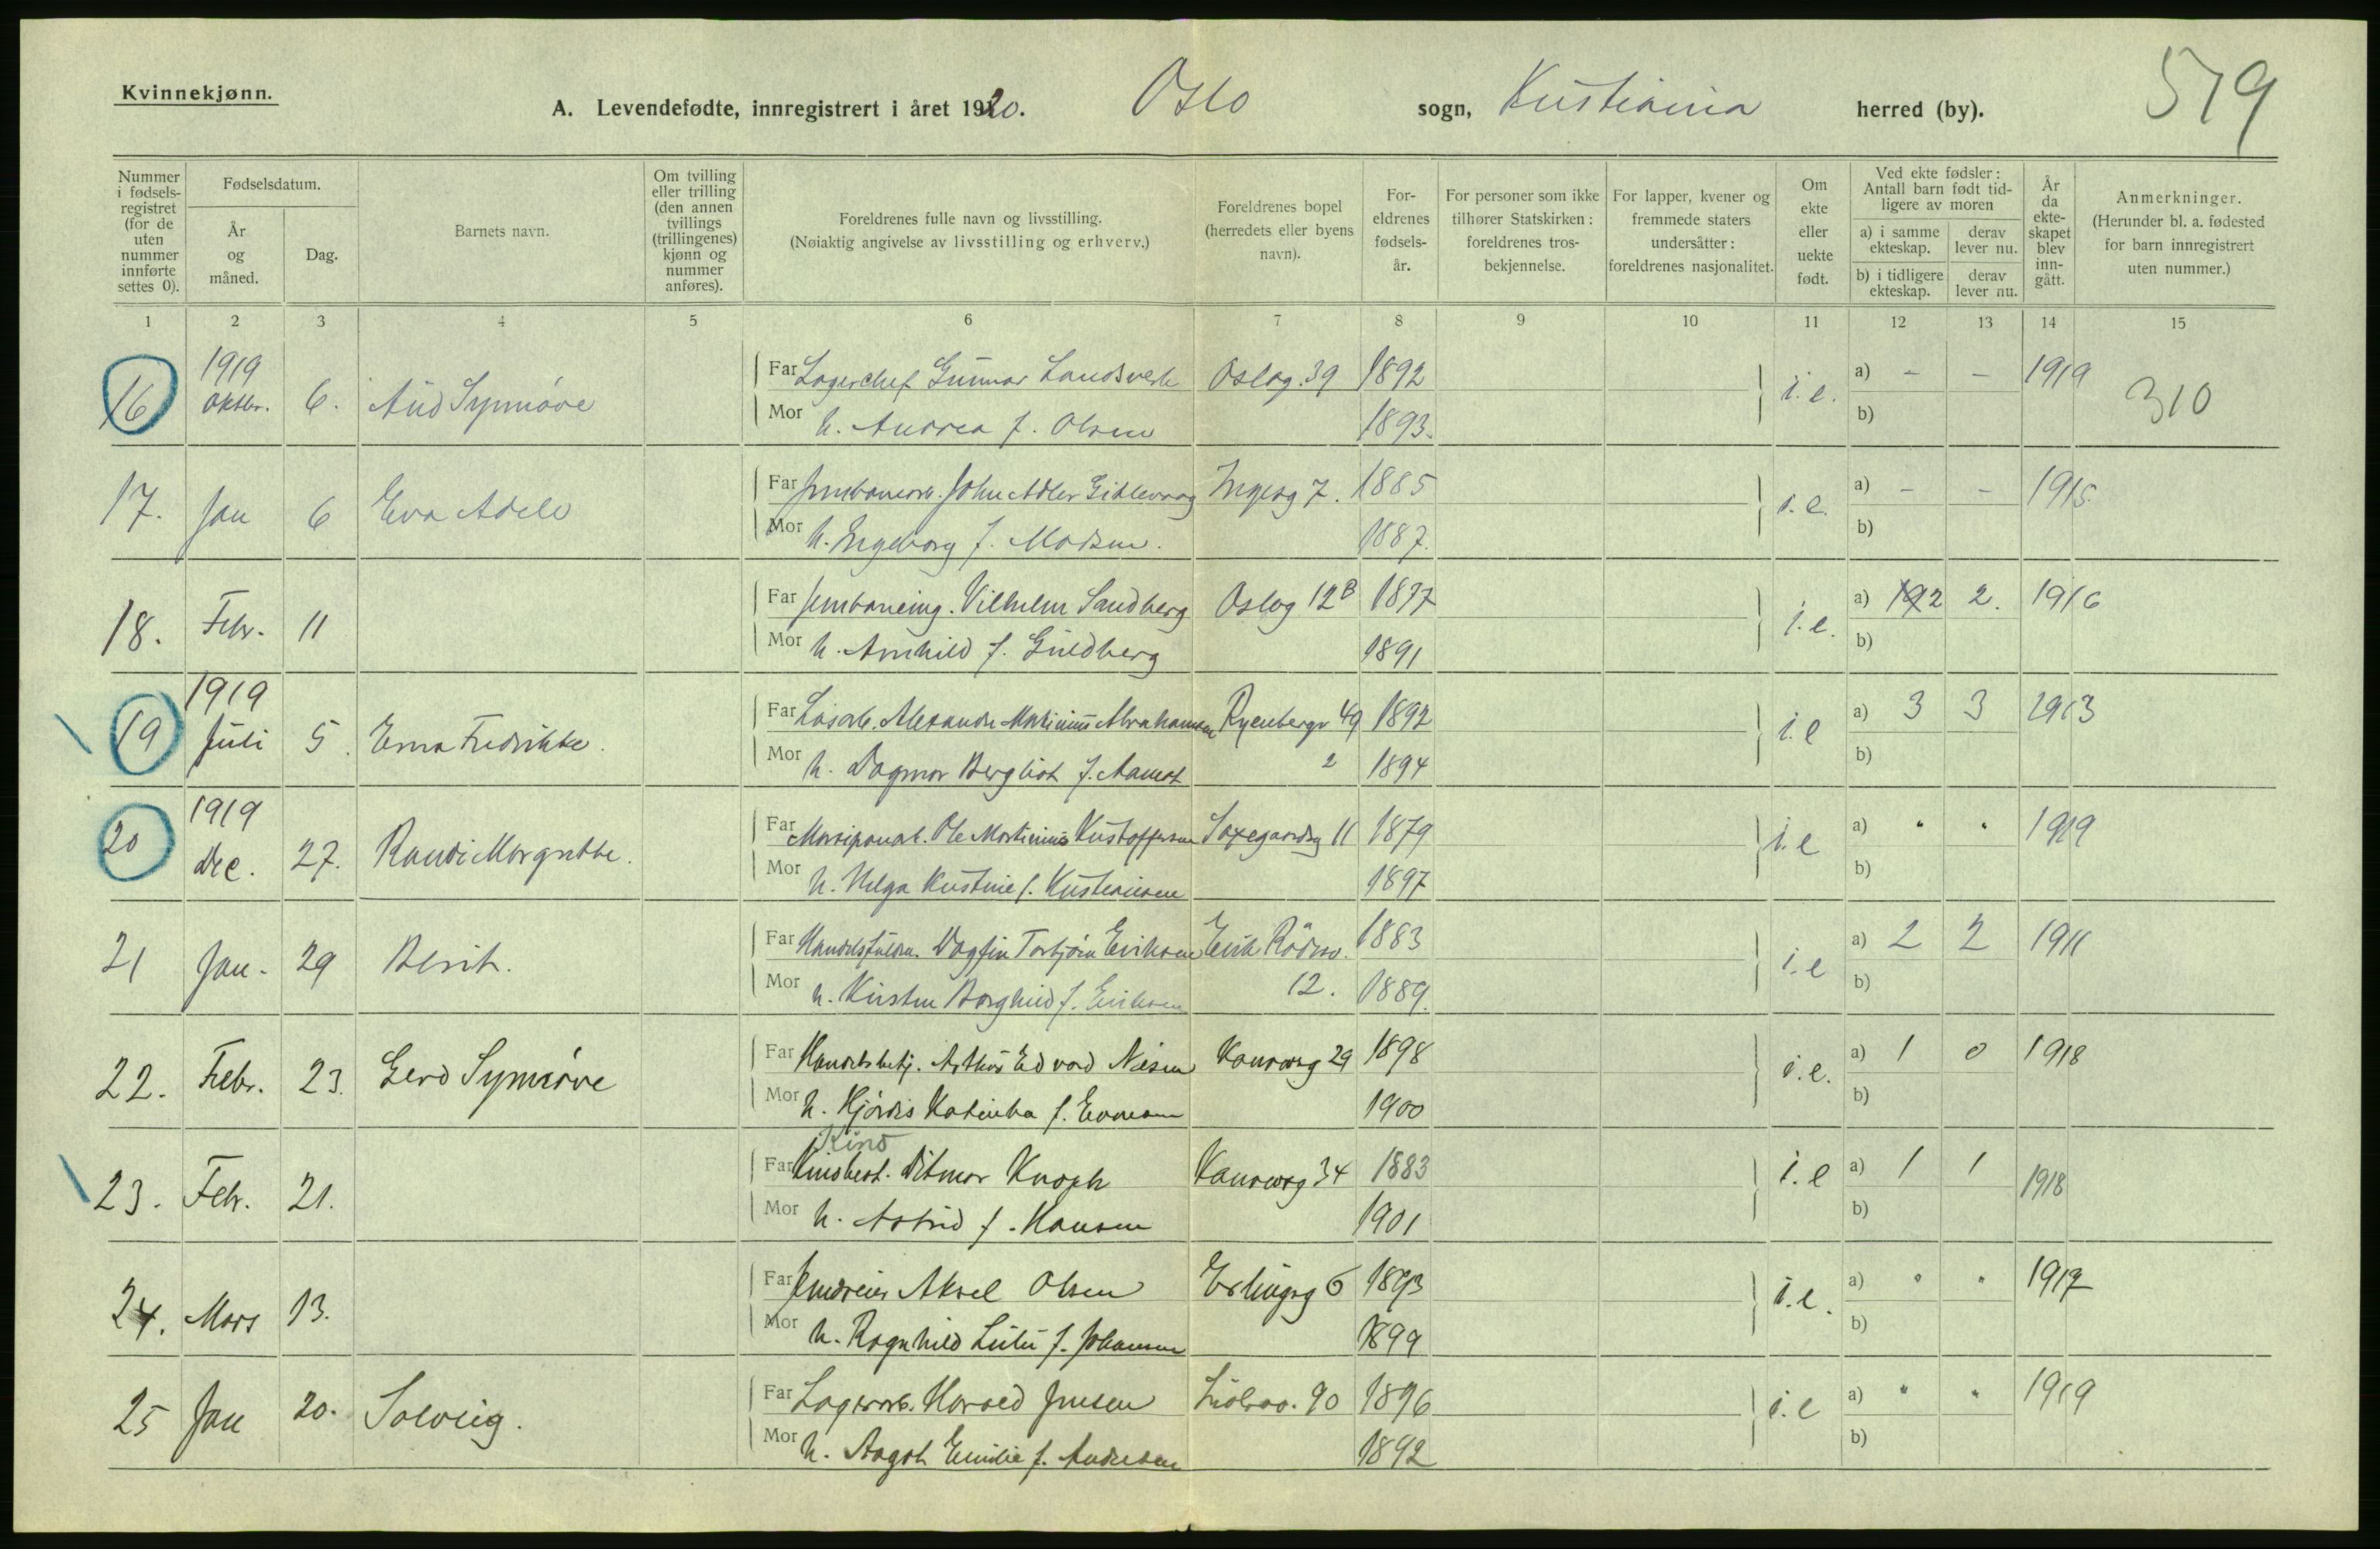 Kvinnekjønn.
A. Levendefødte, innregistrert i året 1920. Oslo sogn, Kristiania herred (by). 519
Nummer i fødsels-registret (for de uten nummer innførte settes 0).
Fødselsdatum.
År og måned.
Dag.
Barnets navn.
Om tvilling eller trilling (den annen tvillings (trillingenes) kjønn og nummer anføres).
Foreldrenes fulle navn og livsstilling.
(Nøiaktig angivelse av livsstilling og erhverv.)
Foreldrenes bopel (herredets eller byens navn).
For-eldrenes fødsels-år.
For personer som ikke tilhører Statskirken: foreldrenes tros-bekjennelse.
For lapper, kvener og fremmede staters undersåtter: foreldrenes nasjonalitet.
Om ekte eller uekte født.
Ved ekte fødsler: Antall barn født tid-ligere av moren
a) i samme ekteskap.
derav lever nu.
b) i tidligere ekteskap.
derav lever nu.
År da ekte-skapet blev inn-gått.
Anmerkninger.
(Herunder bl. a. fødested for barn innregistrert uten nummer.)
1 2 3 4 5 6 7 8 9 10 11 12 13 14 15
16 1919 Oktbr. 6. Aud Synnöve Far Lagerchef Gunnar Landsverk Oslog. 39 1892 i.e. a) - - 1919 310
Mor h. Andrea f. Olsen 1893. b)
17. Jan 6 Eva Adele Far John Adler Gihlevaag Ingesg 7. 1885 i.e. a) - - 1915.
Mor h. Ingeborg f. Madsen. 1887. b)
18. Febr. 11 Far Vilhelm Sandberg Oslog 12B 1877 i.e. a) 2 2. 1916
Mor h. Arnhild f. Guldberg 1891 b)
19 1919 Juli 5. Erna Fredrikke. Far Løsarb. Alexander Abrahamsen Ryenbergv 49 1892 i.e a) 3 3 1913
Mor h. Dagmar Bergliot f. Aamot 2 1894 b)
20 1919 Dec. 27. Randi Margrethe. Far Ole Martinius Kristoffersen Saxegaardsg 11 1879 i.e a) " " 1919
Mor h. Helga Kristine f. Kristiansen 1897 b)
21 Jan. 29 Berit. Far Handelsfuldm. Dagfin Torbjörn Eriksen Eirik Rödesv. 1883 i.e a) 2 2 1911
Mor h. Kirsten Borghild f. Eriksen 12. 1889. b)
22. Febr. 23. Gerd Synnöve Far Handelsbetj. Arthur Edvard Nilsen Kanowsg 29 1898 i.e. a) 1 0 1918
Mor h. Hjördis Katinka f. Evensen 1900 b)
Kino
23. Febr. 21. Far Kinobest. Ditmar Knoph Kanowsg 34 1883 i.e a) 1 1 1918
Mor h. Astrid f. Hansen 1901 b)
24. Mars 13. Far Jerndreier Aksel Olsen Erlingsg 6 1893 i.e. a) " " 1917
Mor h. Ragnhild f. Johansen 1899 b)
25 Jan 20. Solveig. Far Lagerarb. Harald Jensen 90 1896 i.e a) " " 1919
Mor h. Aagot Emilie f. Andersen 1892 b)